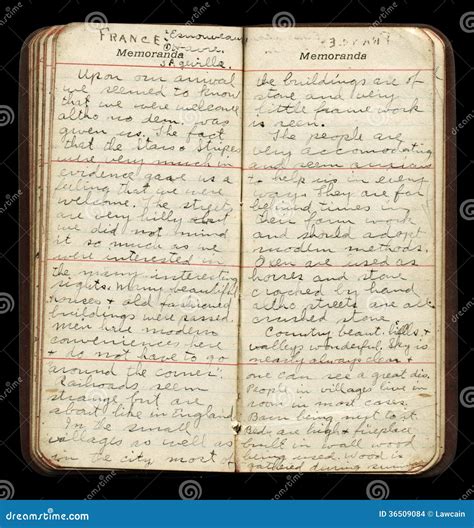 FRANCE:
Memoranda
Upon our arrival
we seemed to know
that we were welcome
altho no dem. was
given us. The fact
that the Stars & Stripes
were very much in
evidence gave us a
feeling that we were
welcome. The streets
are very hilly but
we did not mind
it so much as we
were interested in
the many interesting
sights. Many beautiful
houses & old fashioned
buildings were passed
men have modern
conveniences here
& do not have to go
around the corner.
Railroads seem
strange but are
about like in England
In the small
villages as well as
in the city most of
Memoranda
the buildings are of
stone and very
little frame work
is seen.
The people are
very accomodating
and seem anxious
to help us in every
way. They are far
behind times in
their farm work
and should adopt
modern methods.
Oxen are used as
horses and stone
cracked by hand
altho streets are all
crushed stone
Country beaut. hills &
valleys wonderful. Sky is
nearly always clear &
one can see a great dis.
People in villages live in
room in most cases.
Barn being next to it.
Beds are high & fireplace
built in wall wood
being used. Wood is
gathered during summer
dreamstime.com
ID 36509084 © Lawcain